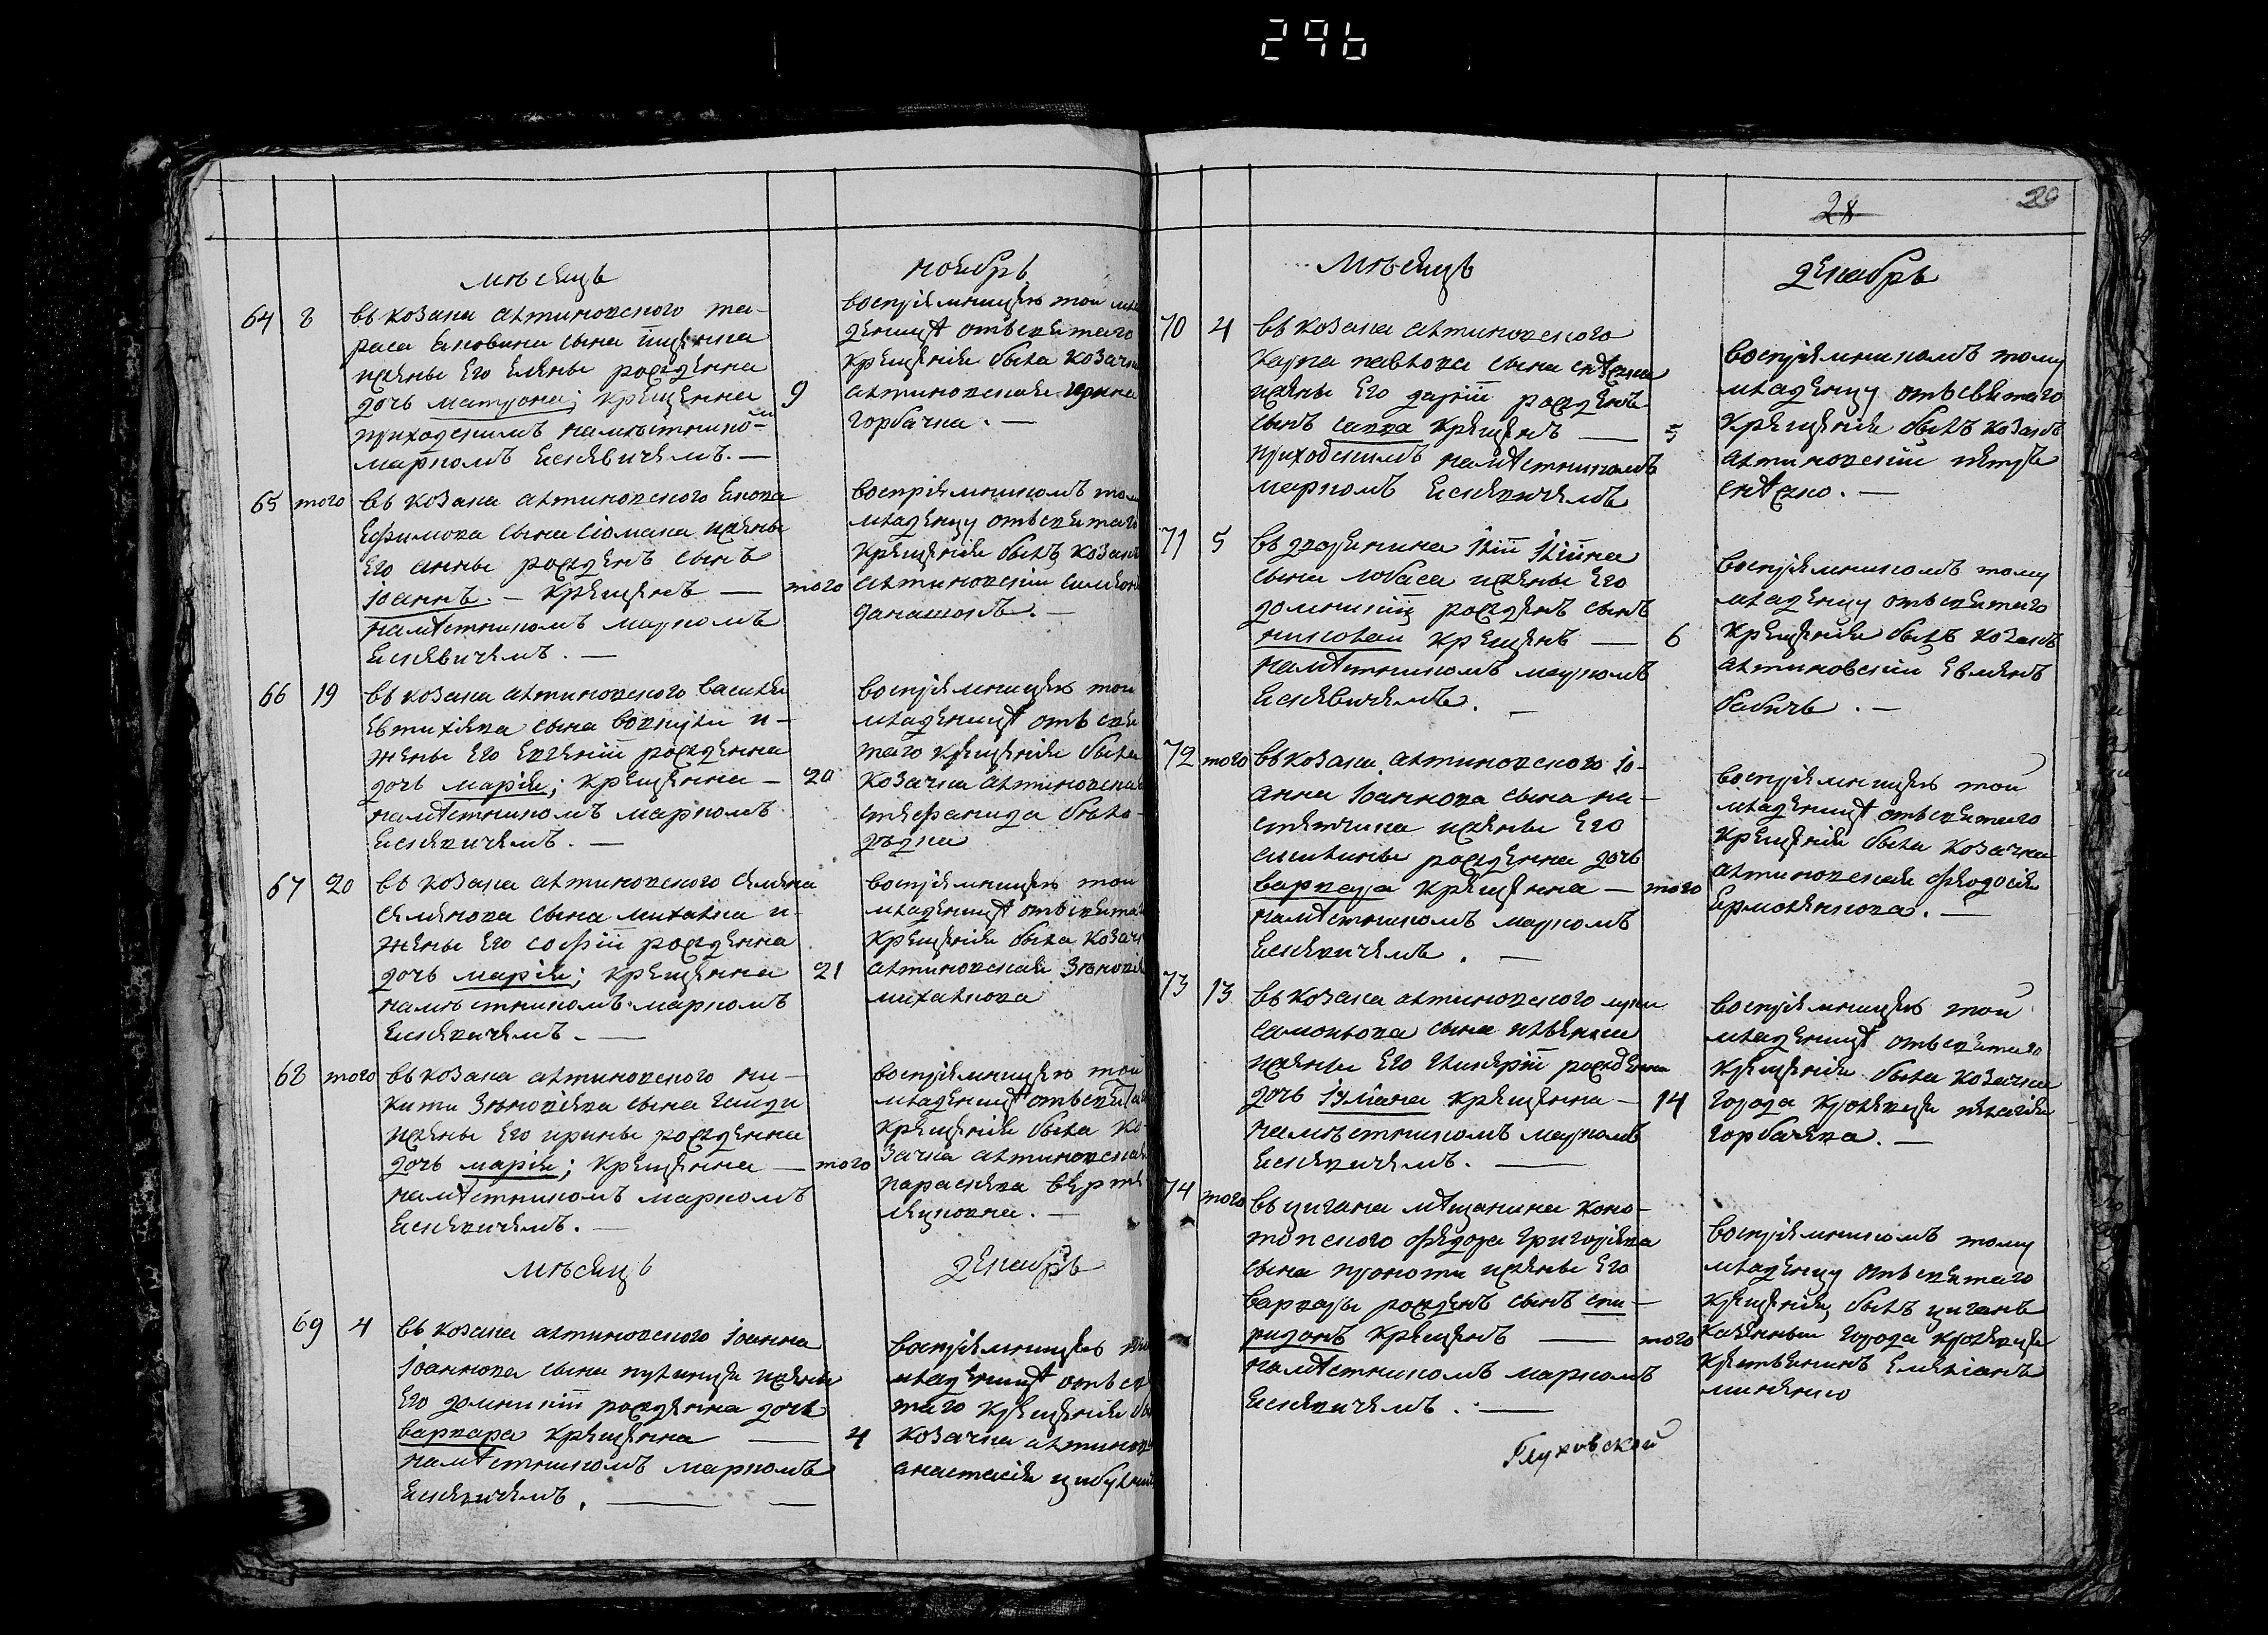 296
мѣсяцъ ноябрь
64 8 въ козака алтиновского та-
раса яковина сына ищенка
жены его елены рожденна
дочь матрона; крещенна 9
приходскимъ намѣстнико-
маркомъ ескевичемъ. —
воспріемницею той мла
деницѣ отъ святаго
крещенія была козачка
алтиновская
горбачка. —
65 того въ козака алтиновского якова
ефимова сына сіомака жены
его анны рожденъ сынъ
іоаннъ. — крещенъ — того
намѣстникомъ маркомъ
ескевичемъ. —
воспріемникомъ тому
младенцу отъ святаго
крещенія былъ козакъ
алтиновскій симеонъ
данашокъ. —
66 19 въ козака алтиновского василія
евтихіева сына
жены его евгеніи рожденна
дочь марія; крещенна — 20
намѣстникомъ маркомъ
ескевичемъ. —
воспріемницею той
младеницѣ отъ свя
таго крещенія была
козачка алтиновская
стефанида
67 20 въ козака алтиновского семена
семенова сына михалка и-
жены его софіи рожденна
дочь марія; крещенна 21
намѣстникомъ маркомъ
ескевичемъ. —
воспріемницею той
младеницѣ отъ свята
крещенія была козач
алтиновская зѣновія
михалкова
68 того въ козака алтиновского ни-
киты зѣновіева сына
жены его ирины рожденна
дочь марія; крещенна — того
намѣстникомъ маркомъ
ескевичемъ. —
воспріемницею той
младеницѣ отъ свята
крещенія была ко-
зачка алтиновская
параскева
мѣсяцъ декабрь
69 4 въ козака алтиновского іоанна
іоаннова сына жены
его домникіи рожденна дочь
варвара крещенна — 4
намѣстникомъ маркомъ
ескевичемъ. —
воспріемницею
младеницѣ отъ св
таго крещенія бы
козачка алтинов
анастасія
28 29
мѣсяцъ декабрь
70 4 въ козака алтиновского
карпа павлова сына
жены его даріи рожденъ
сынъ савва крещенъ — 5
приходскимъ намѣстникомъ
маркомъ ескевичемъ
воспріемникомъ тому
младенцу отъ святаго
крещенія былъ козакъ
алтиновскій петръ
71 5 въ дворянина иліи иліина
сына лобаса жены его
домникіи рожденъ сынъ
николай крещенъ — 6
намѣстникомъ маркомъ
ескевичемъ. —
воспріемникомъ тому
младенцу отъ святаго
крещенія былъ козакъ
алтиновскій
бабичъ. —
72 того въ козака алтиновского іо-
анна іоаннова сына
жены его
рожденна дочь
варвара крещенна — того
намѣстникомъ маркомъ
ескевичемъ. —
воспріемницею той
младеницѣ отъ святаго
крещенія была козачка
алтиновская феодосія
ермоленкова. —
73 13 въ козака алтиновского луки
самойлова сына
жены его гликеріи рожденна
дочь іуліана крещенна — 14
намѣстникомъ маркомъ
ескевичемъ. —
воспріемницею той
младеницѣ отъ святаго
крещенія была козачка
города кролевца пелагія
горбачева. —
74 того въ цигана мѣщанина коно-
топского федора григоріева
сына жены его
варвары рожденъ сынъ спи-
ридонъ крещенъ — того
намѣстникомъ маркомъ
ескевичемъ. —
воспріемникомъ тому
младенцу отъ святаго
крещенія, былъ циганъ
казенный города кролевца
емеліанъ
миненко
Глуховскій